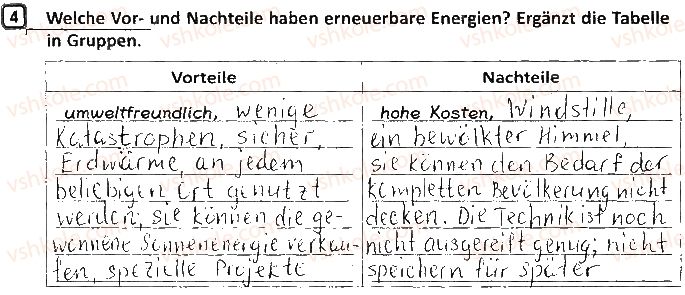 4 Welche Vor- und Nachteile haben erneuerbare Energien? Ergänzt die Tabelle
in Gruppen.
Vorteile
umweltfreundlich, wenige
Katastrophen, sicher,
Erdwärme, an jedem
beliebigen Ort genutzt
werden, sie können die ge-
wonnene Sonnenenergie verkau-
fen, spezielle Projekte
Nachteile
hohe Kosten, Windstille,
ein bewölkter Himmel,
sie können den Bedarf der
kompletten Bevölkerung nicht
decken. Die Technik ist noch
nicht ausgereift genug; nicht
speichern für später